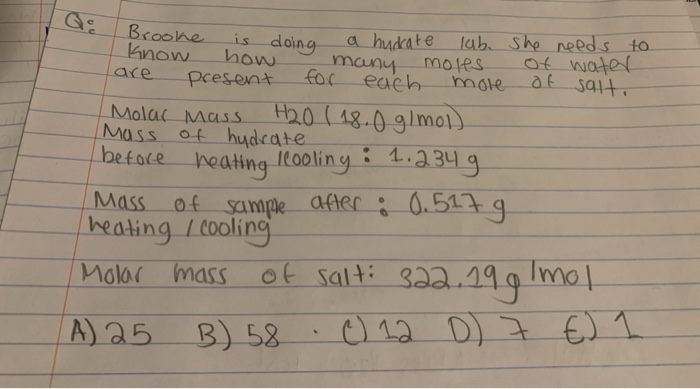 Q: Brooke is doing a hydrate lab. She needs to
know how many moles of water
are present for each mole of salt.
Molar Mass H2O (18.0 g/mol)
Mass of hydrate
before heating/cooling: 1.234 g
Mass of sample after: 0.517 g
heating / cooling
Molar mass of salt: 322.19 g/mol
A) 25 B) 58 . C) 12 D) 7 E) 1